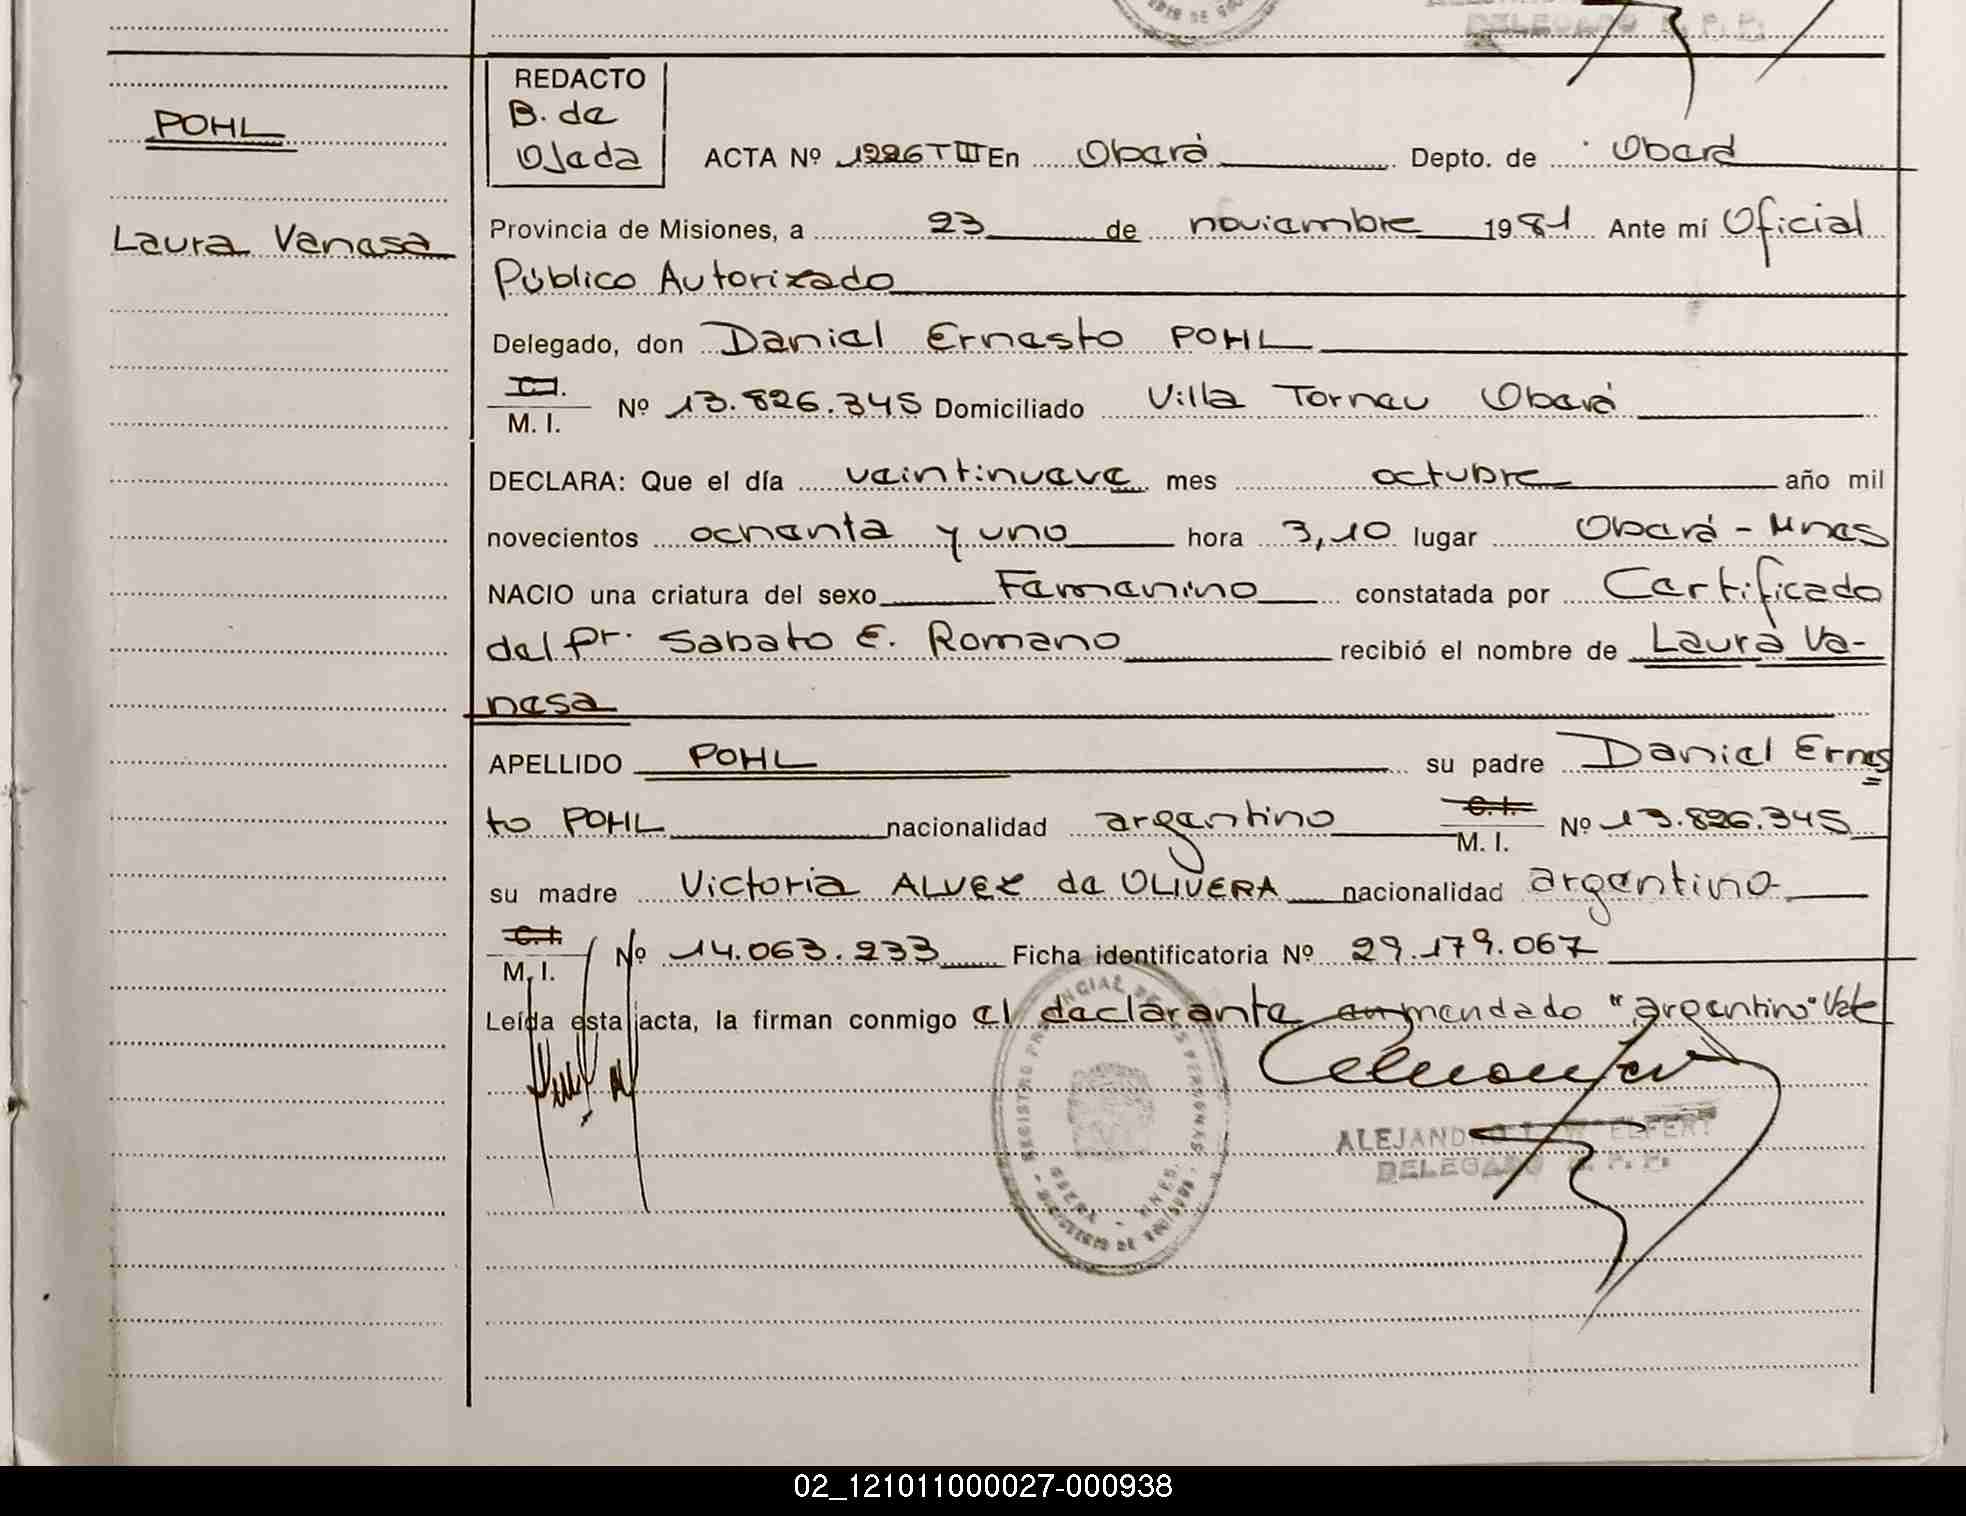 DELEGADO R. P. P.
POHL
Laura Vanesa
REDACTO
B. de
Ojeda
ACTA Nº 1226 T III En Oberá Depto. de Oberá
Provincia de Misiones, a 23 de noviembre 1981 Ante mí Oficial
Público Autorizado
Delegado, don Daniel Ernesto POHL
M. I. Nº 13.826.345 Domiciliado Villa Tornau Oberá
DECLARA: Que el día veintinueve mes octubre año mil
novecientos ochenta y uno hora 3,10 lugar Oberá - Mnes
NACIO una criatura del sexo Femenino constatada por Certificado
del Dr. Sabato E. Romano recibió el nombre de Laura Va-
nesa
APELLIDO POHL su padre Daniel Ernes
to POHL nacionalidad argentino C.I. M. I. Nº 13.826.345
su madre Victoria ALVEZ de OLIVERA nacionalidad argentino
C.I. M. I. Nº 14.063.233 Ficha identificatoria Nº 29.179.067
Leída esta acta, la firman conmigo el declarante enmendado "argentino" Vale
REGISTRO PROVINCIAL DE LAS PERSONAS
OBERA - MNES.
ALEJANDRO
DELEGADO R. P. P.
02_121011000027-000938